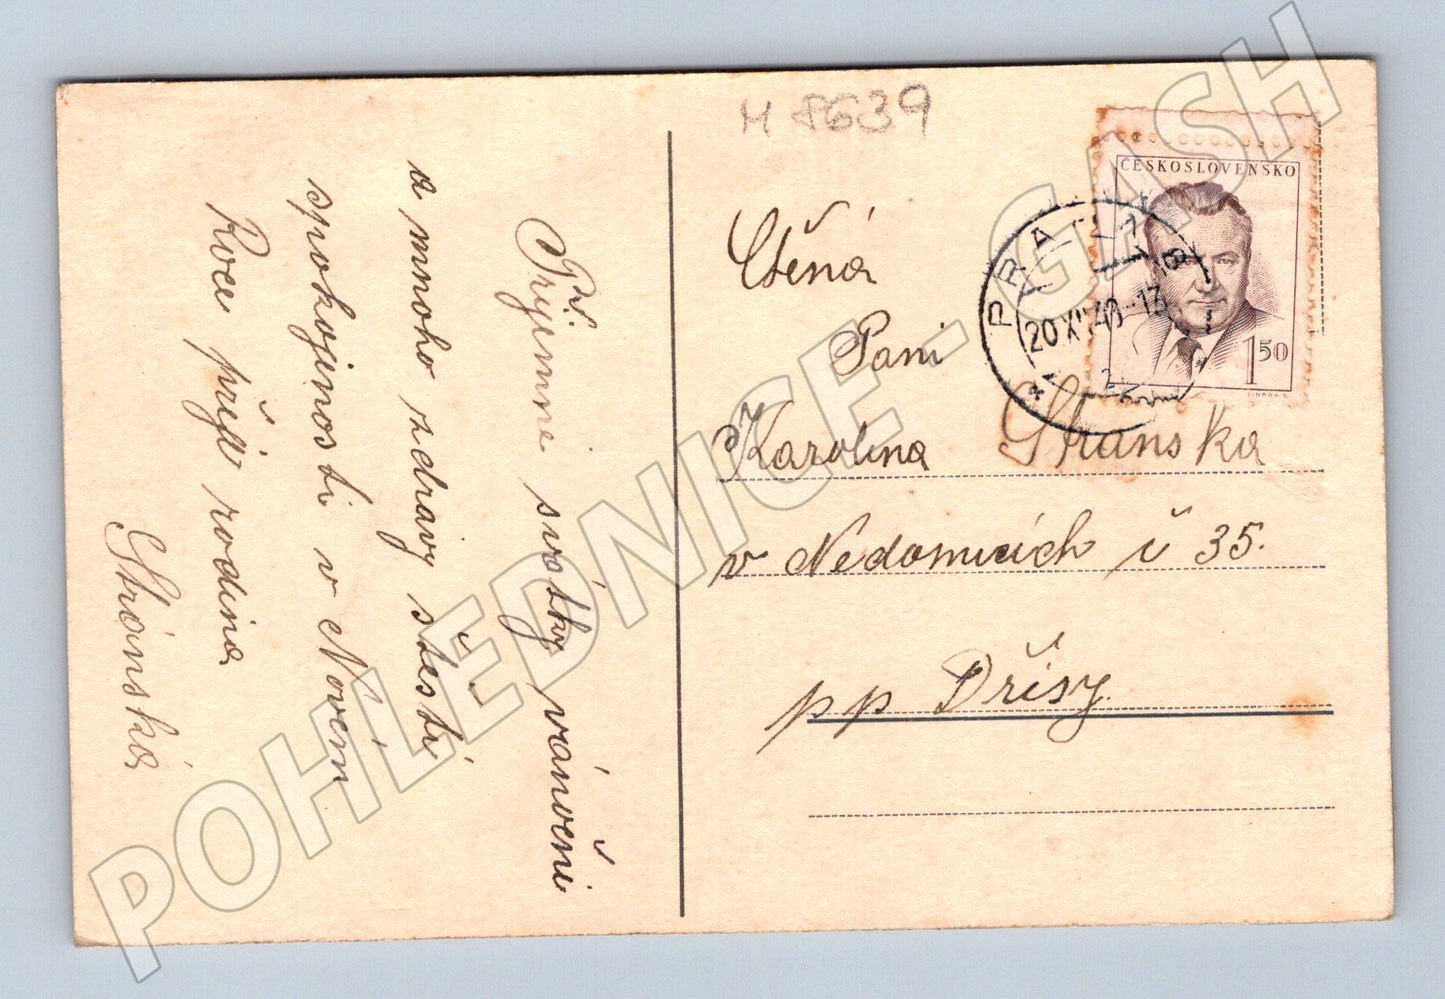 M 8639
ČESKOSLOVENSKO
1 50
PRAHA
20 XII 48 - 17
Ctěná
Paní
Karolina Stránska
v Nedomicích č 35.
pp Dřísy
Př.
Pryemne svátky vánočni
a mnoho zdravy stěsti
spokojenosti v Novém
Roce přeji rodina
Stránská
POHLEDNICE - GASH